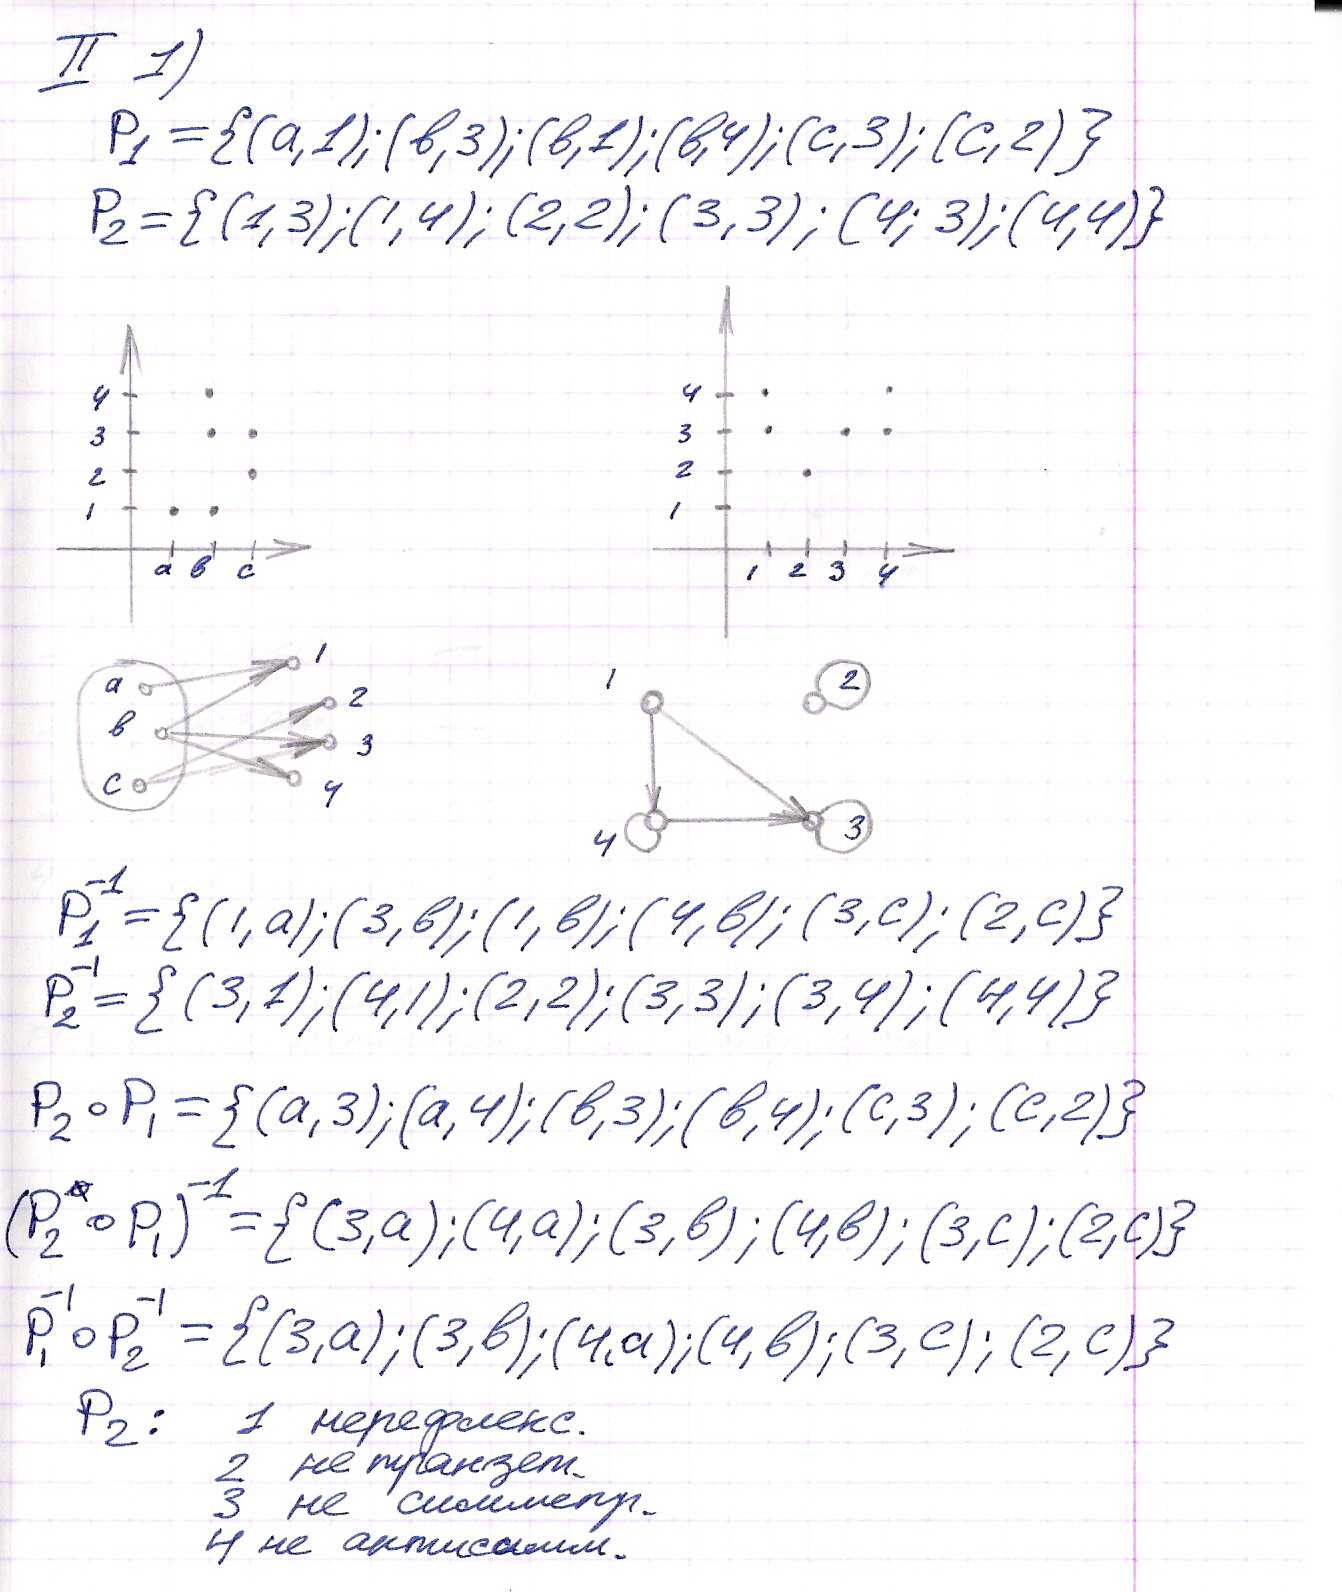 II 1)
P₁ = {(a,1); (в,3); (в,1); (в,4); (c,3); (c,2)}
P₂ = {(1,3); (1,4); (2,2); (3,3); (4;3); (4,4)}
4
3
2
1
a в c
4
3
2
1
1 2 3 4
a
в
c
1
2
3
4
1 2
4 3
P₁⁻¹ = {(1,a); (3,в); (1,в); (4,в); (3,c); (2,c)}
P₂⁻¹ = {(3,1); (4,1); (2,2); (3,3); (3,4); (4,4)}
P₂ ∘ P₁ = {(a,3); (a,4); (в,3); (в,4); (c,3); (c,2)}
(P₂ ∘ P₁)⁻¹ = {(3,a); (4,a); (3,в); (4,в); (3,c); (2,c)}
P₁⁻¹ ∘ P₂⁻¹ = {(3,a); (3,в); (4,a); (4,в); (3,c); (2,c)}
P₂: 1 нерефлекс.
2 не транзет.
3 не симметр.
4 не антисимм.